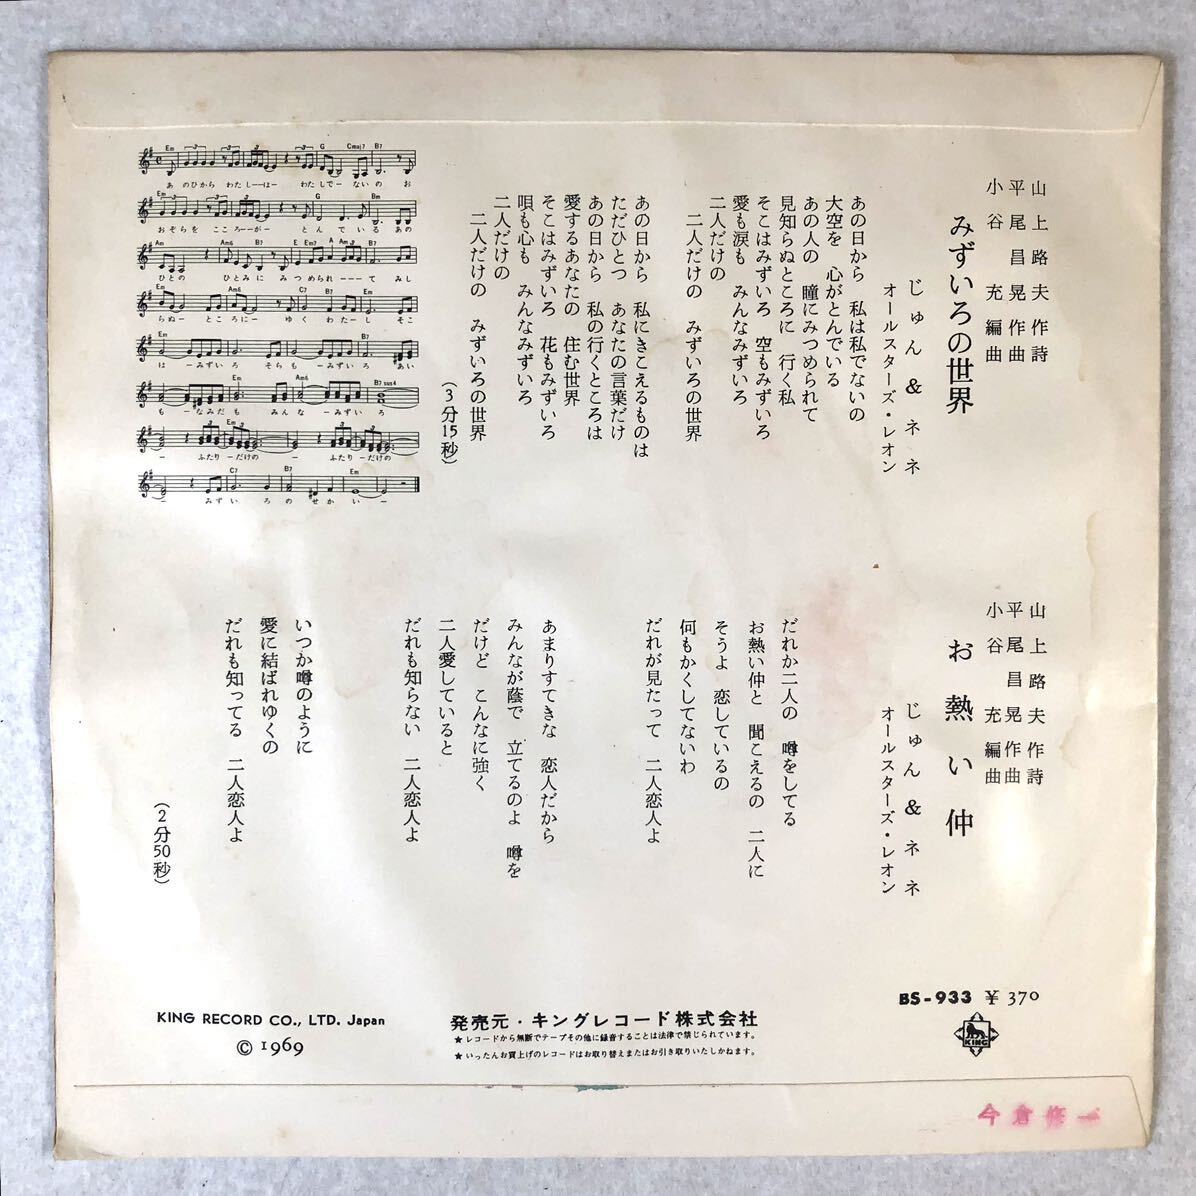 山上路夫 作詩
平尾昌晃 作曲
小谷 充 編曲
みずいろの世界
じゅん&ネネ
オールスターズ・レオン
あの日から 私は私でないの
大空を 心がとんでいる
あの人の 瞳にみつめられて
見知らぬところに 行く私
そこはみずいろ 空もみずいろ
愛も涙も みんなみずいろ
二人だけの
二人だけの みずいろの世界
あの日から 私にきこえるものは
ただひとつ あなたの言葉だけ
あの日から 私の行くところは
愛するあなたの 住む世界
そこはみずいろ 花もみずいろ
唄も心も みんなみずいろ
二人だけの
二人だけの みずいろの世界
(3分15秒)
Em 3 3 G Cmaj7 B7
あのひから わたしーはー わたしでーないの お
Em 3 3 G Bm
おぞらを こころーがー とんでいる あの
Am Am6 B7 E Em7 A Am B7
ひとの ひとみに みつめられーーーて みし
Em Am6 C7 B7 Em
らぬー ところにー ゆく わたーし そこ
Em
はーみずいろ そらもーみずいろ あい
Em Am6 B7sus4
もーなみだも みんなーみずいろ
Em
ーふたりーだけの ー ーふたりーだけの
C7 B7 Em
ー みずい ろのせかいー
山上路夫 作詩
平尾昌晃 作曲
小谷 充 編曲
お熱い仲
じゅん&ネネ
オールスターズ・レオン
だれか二人の 噂をしてる
お熱い仲と 聞こえるの 二人に
そうよ 恋しているの
何もかくしてないわ
だれが見たって 二人恋人よ
あまりすてきな 恋人だから
みんなが蔭で 立てるのよ 噂を
だけど こんなに強く
二人愛していると
だれも知らない 二人恋人よ
いつか噂のように
愛に結ばれゆくの
だれも知ってる 二人恋人よ
(2分50秒)
BS-933 ¥370
KING
KING RECORD CO., LTD. Japan
© 1969
発売元・キングレコード株式会社
★レコードから無断でテープその他に録音することは法律で禁じられています。
★いったんお買上げのレコードはお取り替えまたはお引き取りいたしかねます。
今倉修一